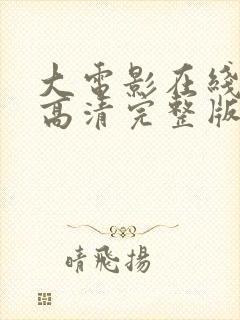 大電影在綫
高清完整版
晴飛揚